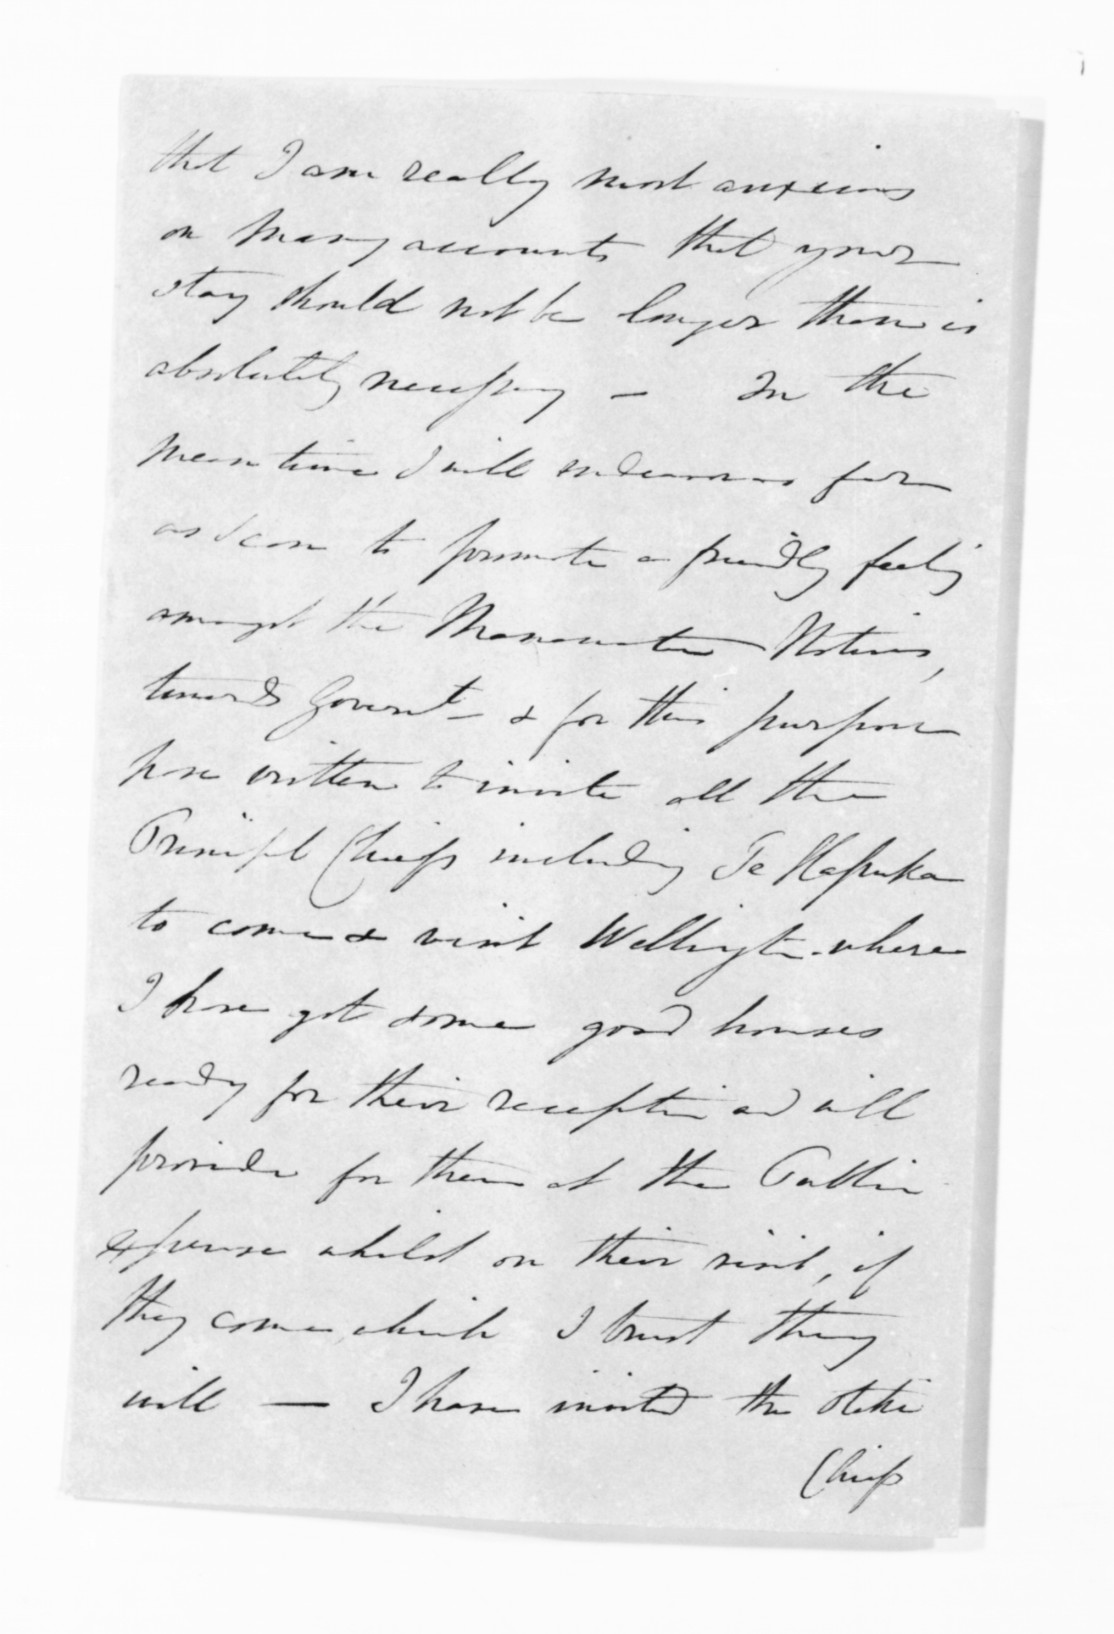 that I am really most anxious
on many accounts that your
stay should not be longer than is
absolutely necessary — In the
mean time I will endeavour as far
as I can to promote a friendly feeling
amongst the Manawatu Natives,
towards Governt — & for this purpose
have written to invite all the
Principal Chiefs including Te Hapuka
to come & visit Wellington where
I have got some good houses
ready for their reception and will
provide for them at the Public
expense whilst on their visit, if
they come, which I trust they
will — I have invited the Otaki
Chiefs